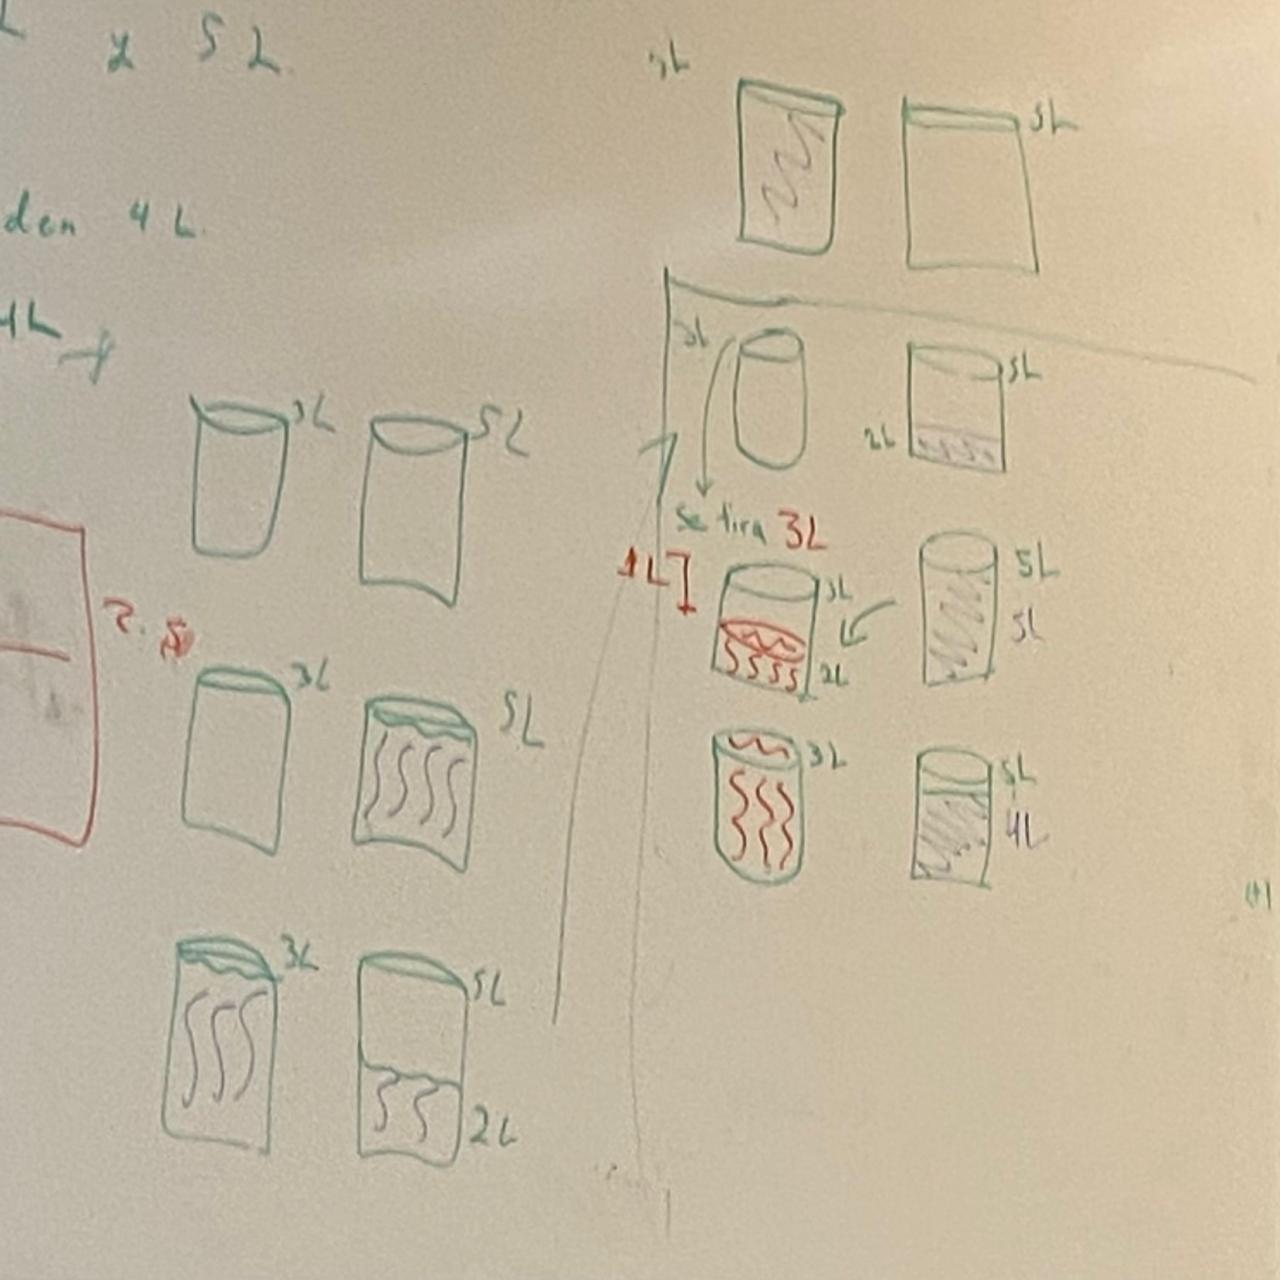 y 5L
den 4L
4L
3L 5L
3L 5L
3L 5L
2L
3L
5L
3L 5L
2L
se tira 3L
1L
3L 5L
5L
2L
3L 5L
4L